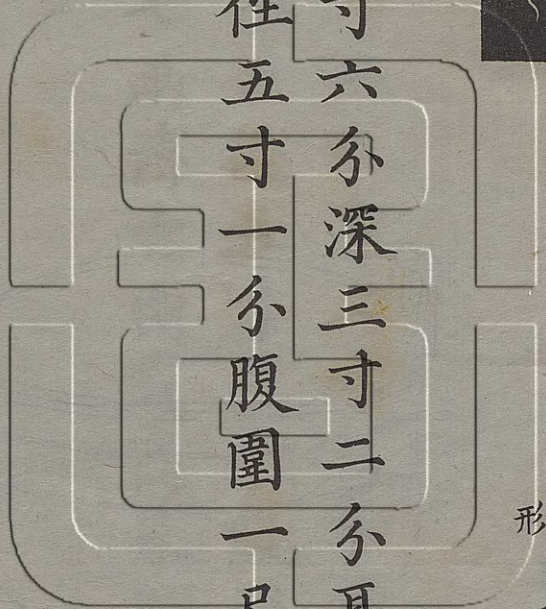 形
寸六分深三寸二分耳
徑五寸一分腹圍一尺